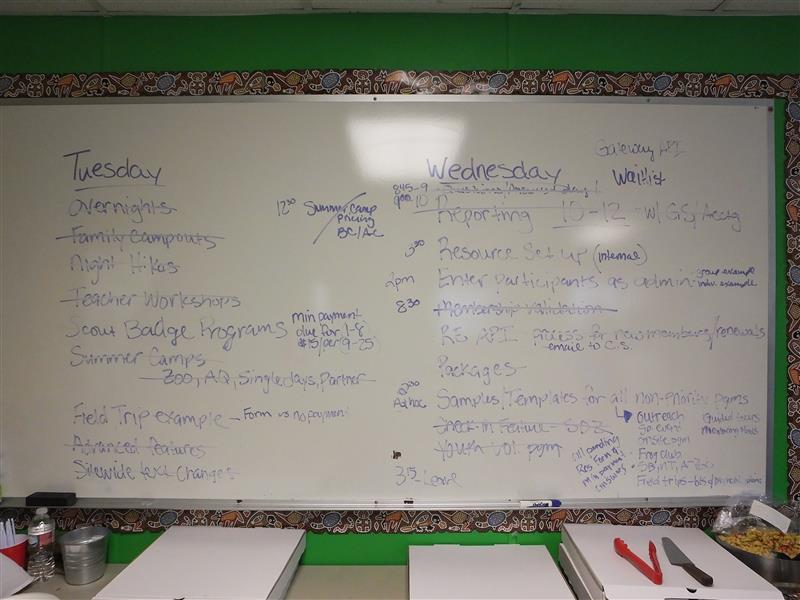 Tuesday
Overnights
Family Campouts
Night Hikes
Teacher Workshops
Scout Badge Programs
min payment
due for 1-8
$15/per 9-25
Summer Camps
Zoo, AQ, Single days, Partner
Field Trip example - Form vs no payment
Advanced features
Sitewide text changes
12:30 Summer camp
pricing
BC/AC
Gateway API
Waitlist
Wednesday
845-9
900-10
Reporting 10-12 - w/ GS/Acctg
3:30 Resource Set up (internal)
2pm Enter participants as admin - group example
indiv. example
8:30 Membership Validation
RE API process for new members/renewals
email to C.S.
Packages
2:00
Ad hoc
Samples/Templates for all non-priority pgms
Outreach
Sp. event
Inside gm
Frog club
Field trips
Guided tours
Check-in Feature
Youth Vol. pgm
all pending
Res form &
min payment
3:15 - Leave